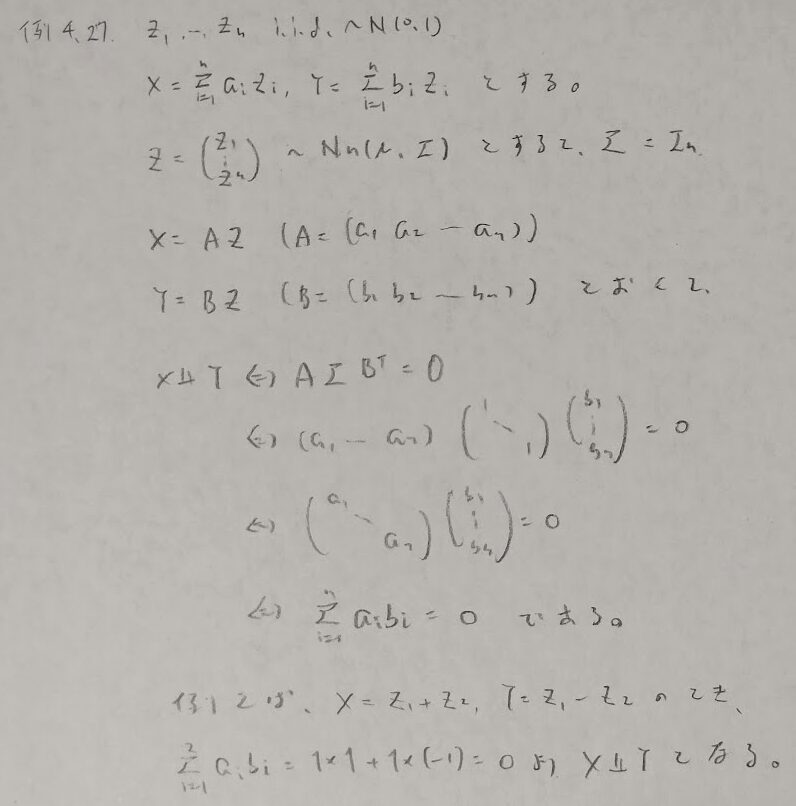 例4.27. Z₁, …, Zₙ i.i.d. ~ N(0,1)
X = Σⁿᵢ₌₁ aᵢZᵢ, Y = Σⁿᵢ₌₁ bᵢZᵢ とする。
Z = (Z₁ ⋮ Zₙ) ~ Nₙ(μ, Σ) とすると、Σ = Iₙ.
X = AZ (A = (a₁ a₂ … aₙ))
Y = BZ (B = (b₁ b₂ … bₙ)) とおくと、
X⫫Y ⇔ AΣBᵀ = 0
⇔ (a₁ … aₙ) (1 ⋱ 1) (b₁ ⋮ bₙ) = 0
⇔ (a₁ ⋱ aₙ) (b₁ ⋮ bₙ) = 0
⇔ Σⁿᵢ₌₁ aᵢbᵢ = 0 である。
例えば、X = Z₁ + Z₂, Y = Z₁ - Z₂ のとき、
Σ²ᵢ₌₁ aᵢbᵢ = 1×1 + 1×(-1) = 0 より X⫫Y となる。